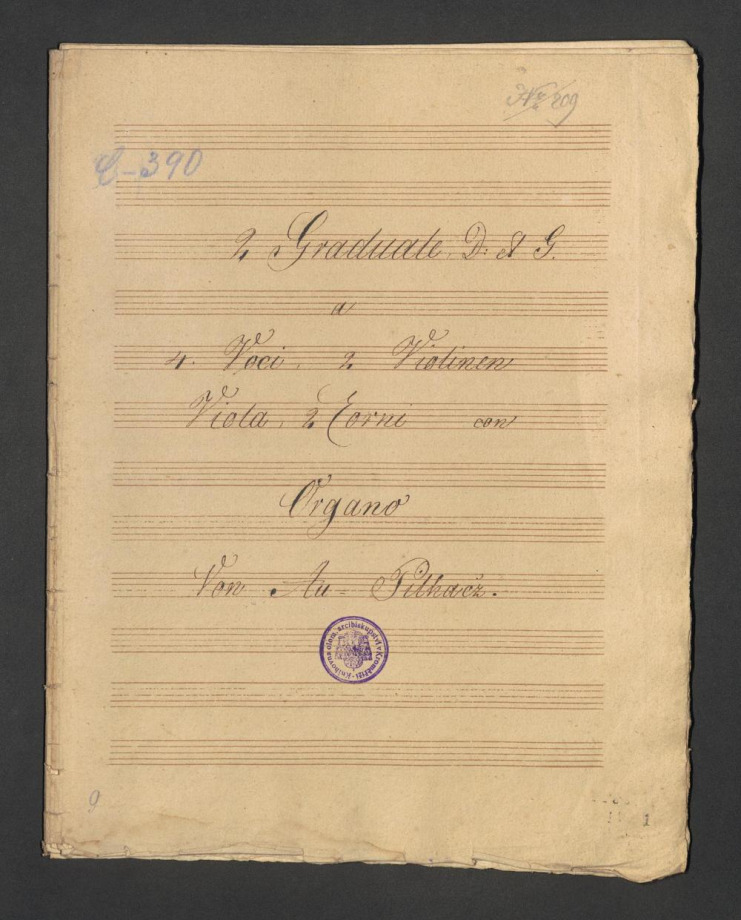 No 209
C-390
2 Graduale, D: et G.
a
4. Voci, 2 Violinen
Viola, 2 Corni con
Organo
Von Au= Pilhacz.
Knihovna olom. arcibiskupství v Kroměříži
9
1